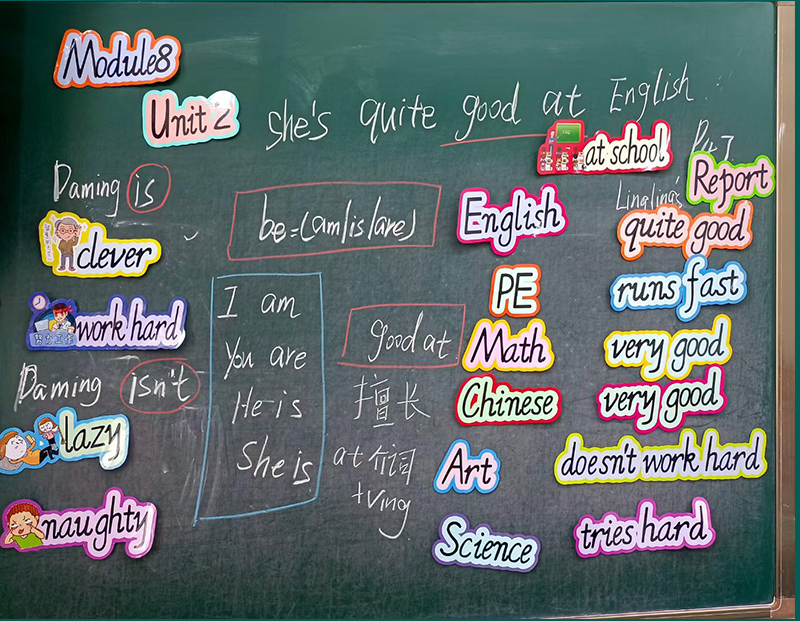 Module8
Unit 2
She's quite good at English
at school
Report
Lingling's
Daming is
clever
work hard
努力工作
Daming isn't
lazy
naughty
be=(am/is/are)
I am
You are
He is
She is
good at
擅长
at 介词
+ving
English
quite good
PE
runs fast
Math
very good
Chinese
very good
Art
doesn't work hard
Science
tries hard